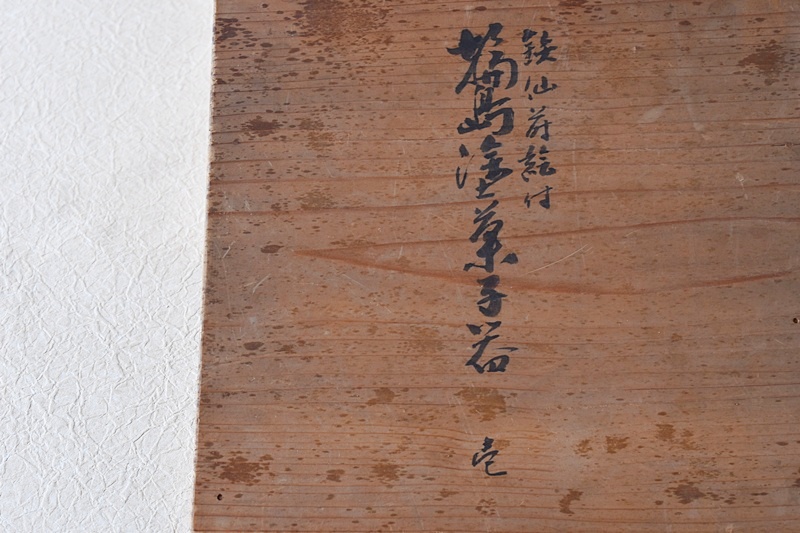 鉄仙蒔絵付
輪島塗菓子器 壱